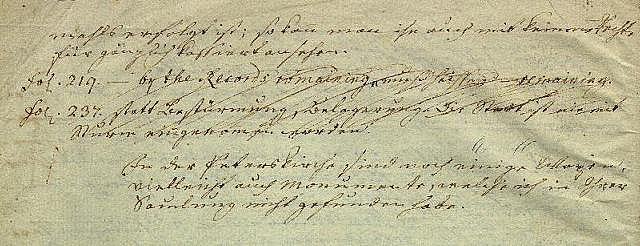 mahls erfolgt ist; so kann man sie auch mit keinem Rechte
für gänzlich kassiert ansehen.
Fol. 219. — by the Records remaining, muß heißen remaining.
Fol. 237. statt Bestürmung, Belagerung. Die Stadt ist nie mit
Sturm eingenommen worden.
In der Peterskirche sind noch einige Wappen,
vielleicht auch Monumente, welche ich in Ihrer
Samlung nicht gefunden habe.